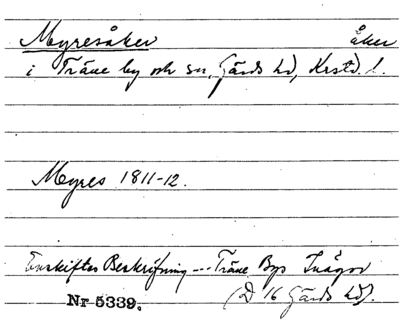 Myresåker åker
i Träne by och sn, Gärds hd, Krstd. l.
Myres 1811-12.
Enskiftes Beskrifning --- Träne Bys Inägor
Nr 5339. (D 16 Gärds hd).